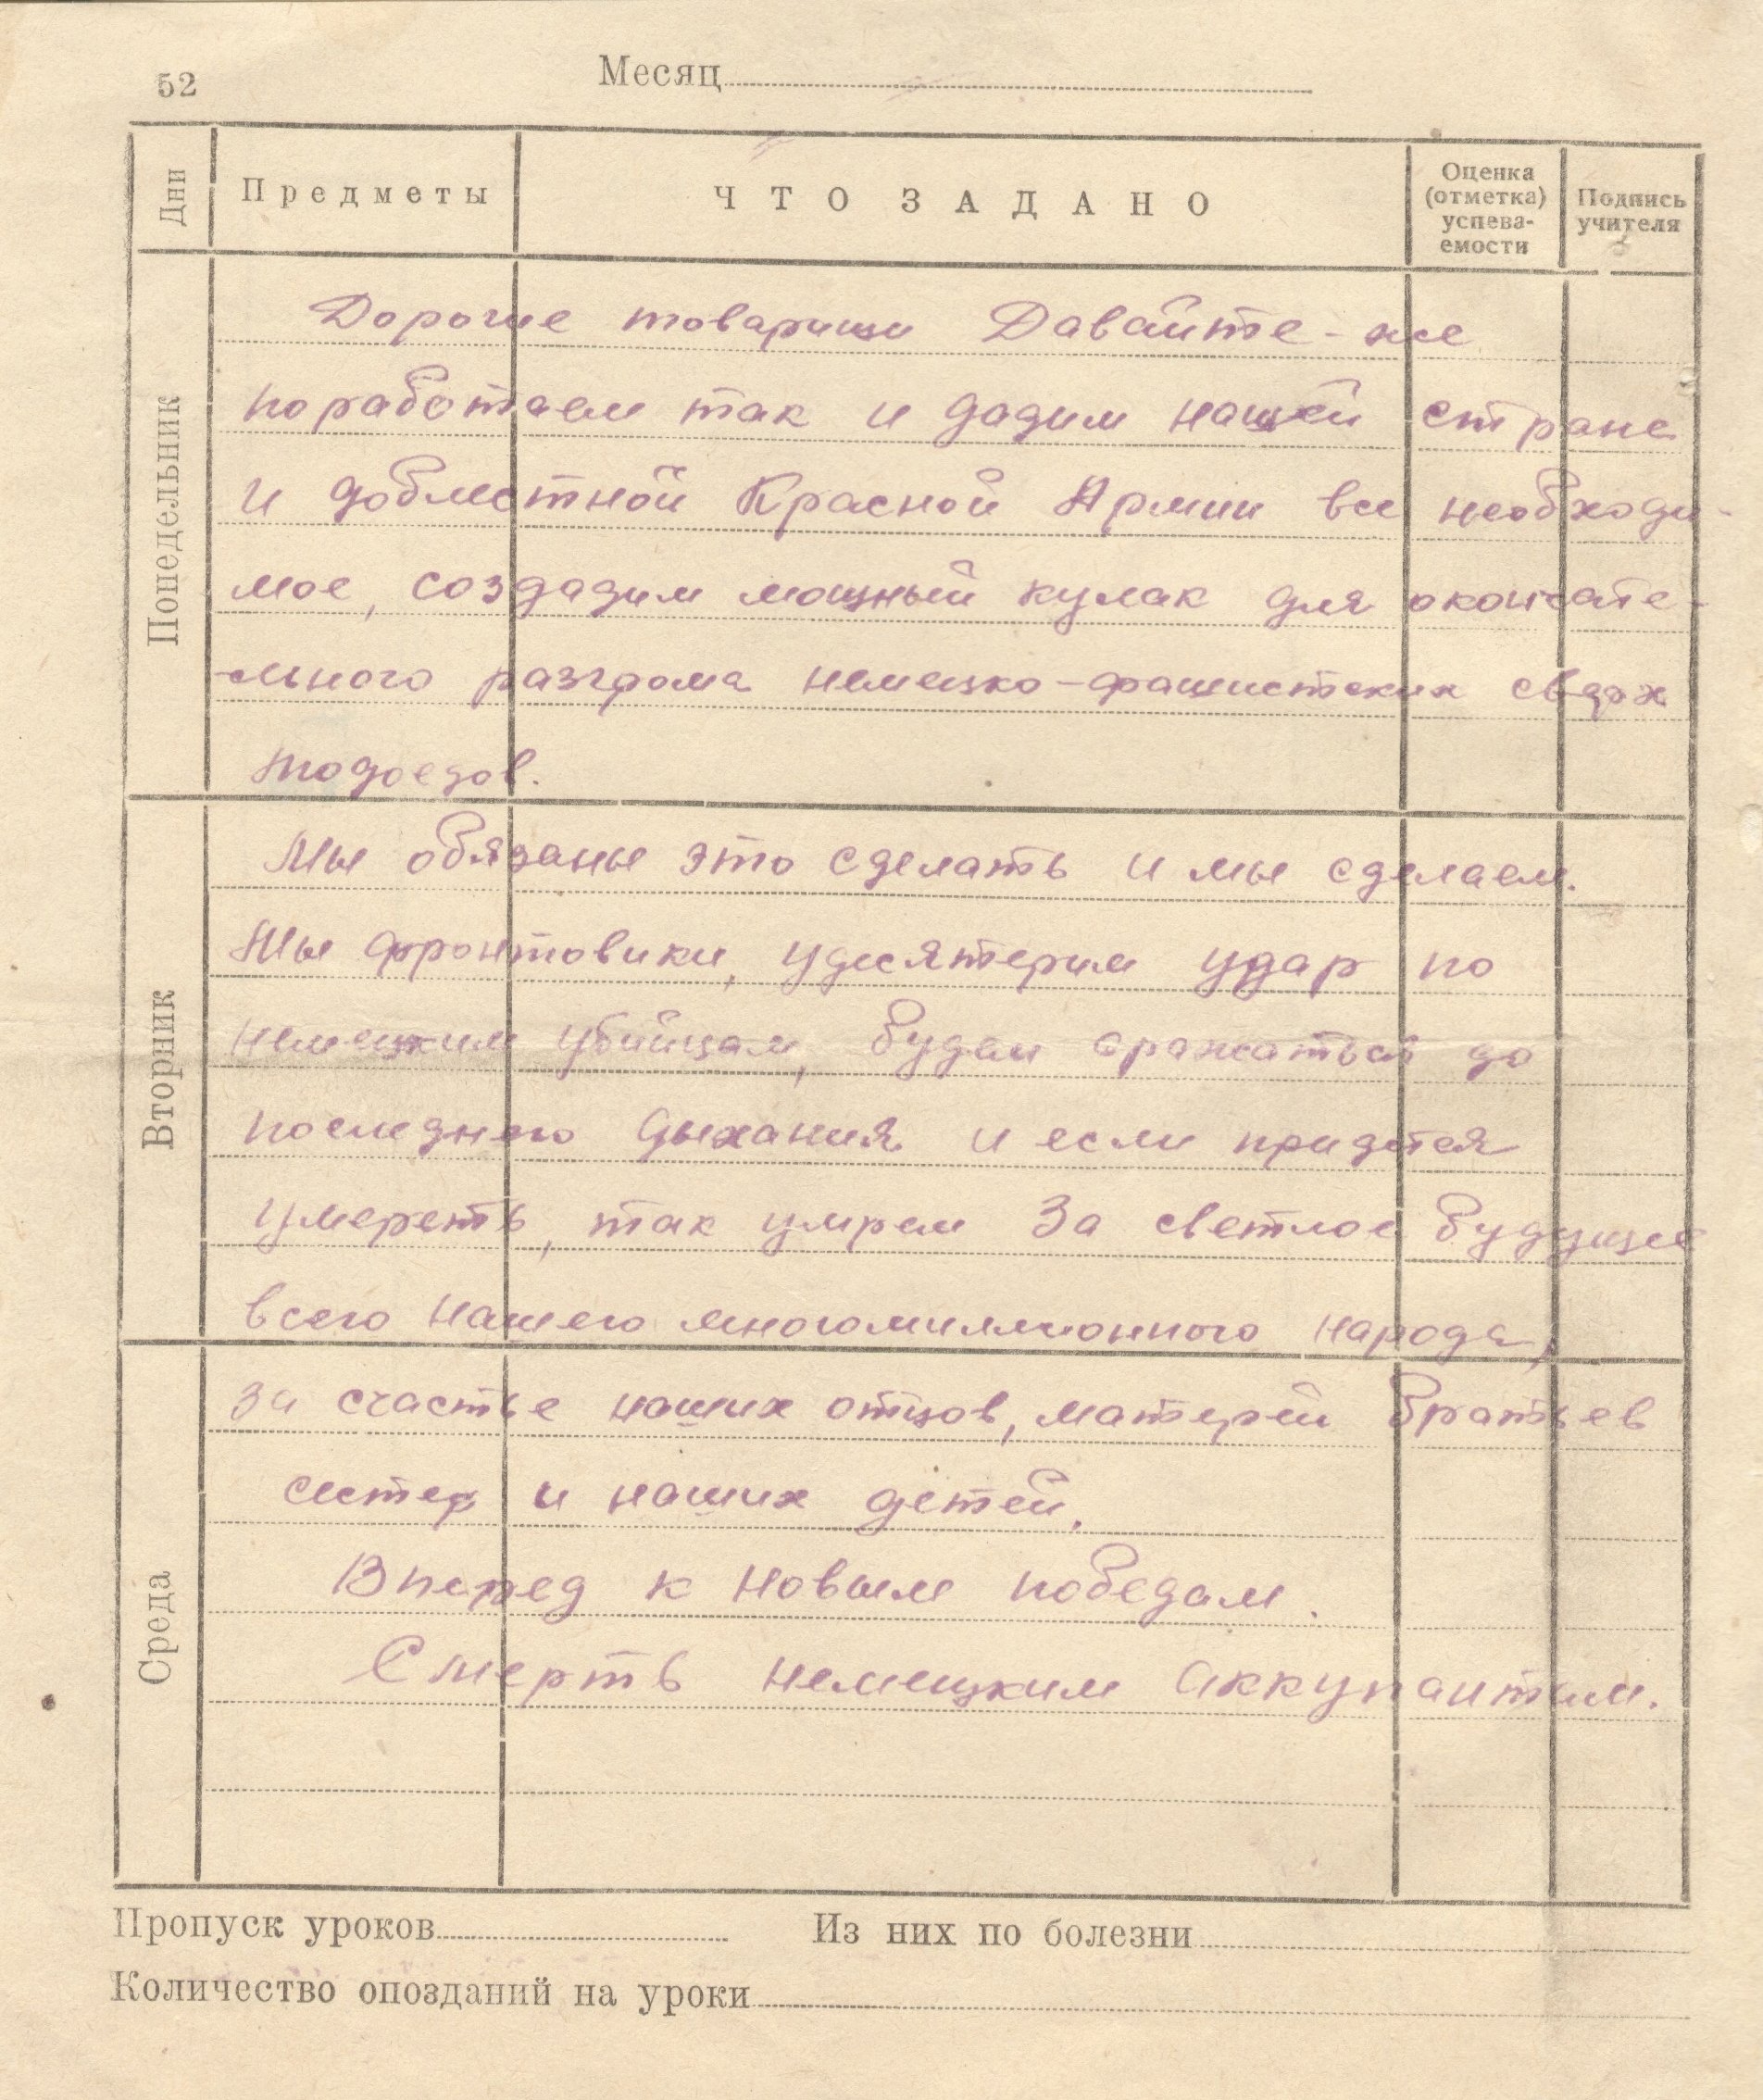 52
Месяц
Дни
Предметы
ЧТО ЗАДАНО
Оценка
(отметка)
успева-
емости
Подпись
учителя
Понедельник
Дорогие товарищи Давайте-же
поработаем так и дадим нашей стране
и доблестной Красной Армии все необходи-
мое, создадим мощный кулак для окончате-
льного разгрома немецко-фашистских
людоедов.
Вторник
Мы обязаны это сделать и мы сделаем.
Мы фронтовики, удесятерим удар по
немецким убийцам, будем сражаться до
последнего дыхания и если придется
умереть, так умрем За светлое будущее
всего нашего многомиллионного народа,
Среда
за счастье наших отцов, матерей братьев
сестер и наших детей.
Вперед к новым победам.
Смерть немецким аккупантам.
Пропуск уроков
Из них по болезни
Количество опозданий на уроки